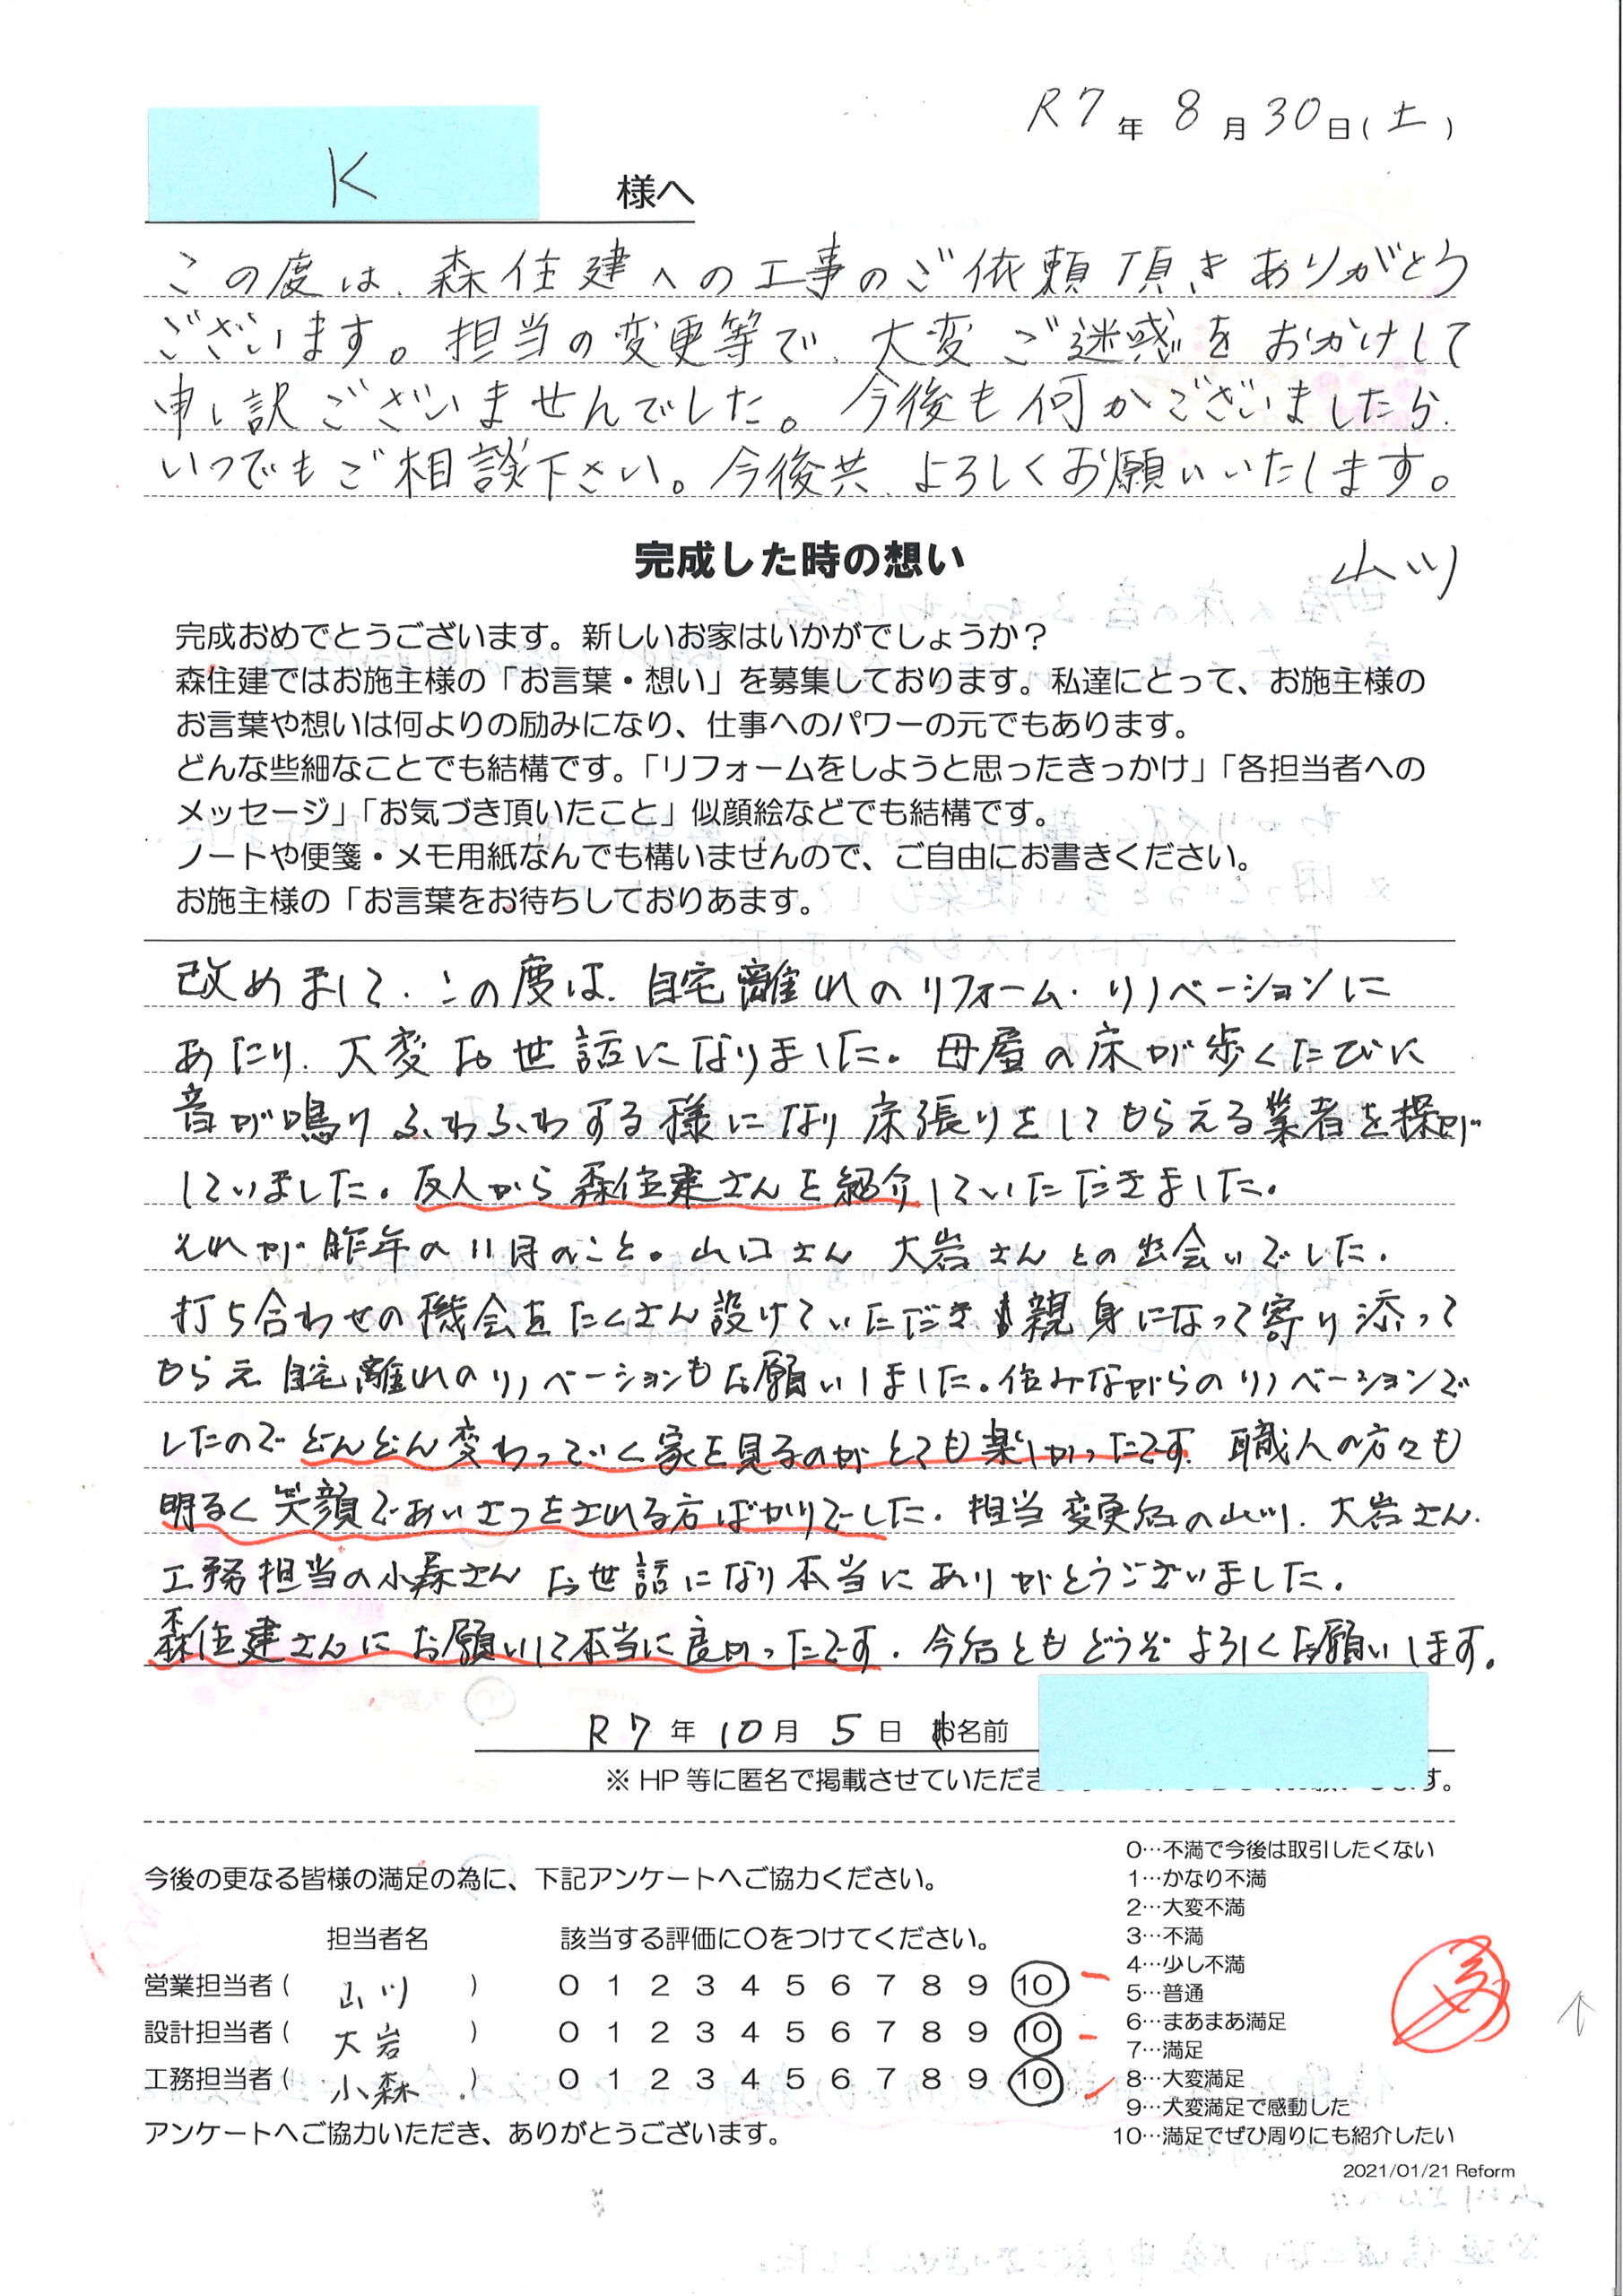 R7年 8月30日(土)
K 様へ
この度は、森住建への工事のご依頼頂きありがとう
ございます。担当の変更等で、大変ご迷惑をおかけして
申し訳ございませんでした。今後も何かございましたら、
いつでもご相談下さい。今後共、よろしくお願いいたします。
山川
完成した時の想い
完成おめでとうございます。新しいお家はいかがでしょうか？
森住建ではお施主様の「お言葉・想い」を募集しております。私達にとって、お施主様の
お言葉や想いは何よりの励みになり、仕事へのパワーの元でもあります。
どんな些細なことでも結構です。「リフォームをしようと思ったきっかけ」「各担当者への
メッセージ」「お気づき頂いたこと」似顔絵などでも結構です。
ノートや便箋・メモ用紙なんでも構いませんので、ご自由にお書きください。
お施主様の「お言葉をお待ちしておりあます。
改めまして、この度は、自宅離れのリフォーム・リノベーションに
あたり、大変お世話になりました。母屋の床が歩くたびに
音が鳴りふわふわする様になり床張りをしてもらえる業者を探が
していました。友人から森住建さんを紹介していただきました。
それが昨年の11月のこと。山口さん 大岩さんとの出会いでした。
打ち合わせの機会をたくさん設けていただき親身になって寄り添って
もらえ自宅離れのリノベーションもお願いしました。住みながらのリノベーションで
したのでどんどん変わっていく家を見るのがとても楽しかったです。職人の方々も
明るく笑顔であいさつをされる方ばかりでした。担当変更後の山川、大岩さん、
工務担当の小森さんお世話になり本当にありがとうございました。
森住建さんにお願いして本当に良かったです。今後ともどうぞよろしくお願いします。
R7年 10月 5日 お名前
※HP等に匿名で掲載させていただき す。
今後の更なる皆様の満足の為に、下記アンケートへご協力ください。
担当者名 該当する評価に○をつけてください。
営業担当者( 山川 ) 0 1 2 3 4 5 6 7 8 9 10
設計担当者( 大岩 ) 0 1 2 3 4 5 6 7 8 9 10
工務担当者( 小森 ) 0 1 2 3 4 5 6 7 8 9 10
アンケートへご協力いただき、ありがとうございます。
0…不満で今後は取引したくない
1…かなり不満
2…大変不満
3…不満
4…少し不満
5…普通
6…まあまあ満足
7…満足
8…大変満足
9…大変満足で感動した
10…満足でぜひ周りにも紹介したい
2021/01/21 Reform